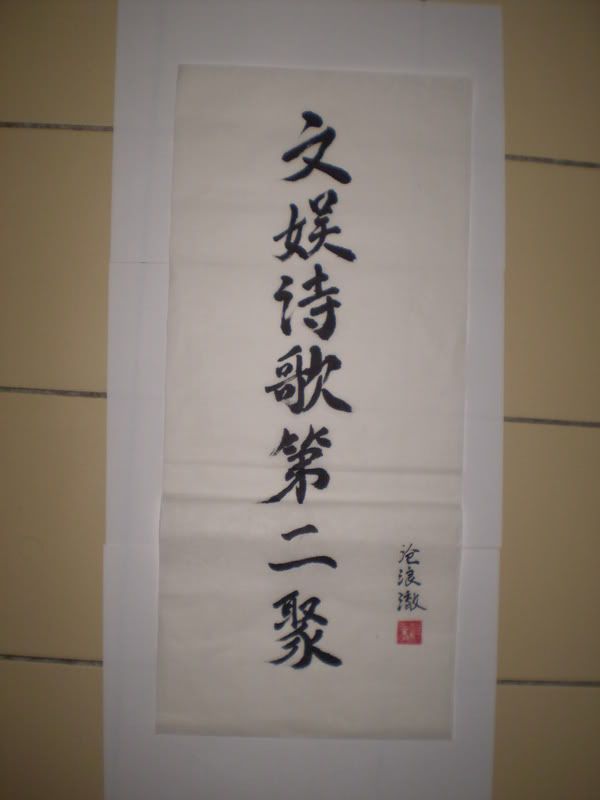 文娱诗歌第二聚
沧浪澈